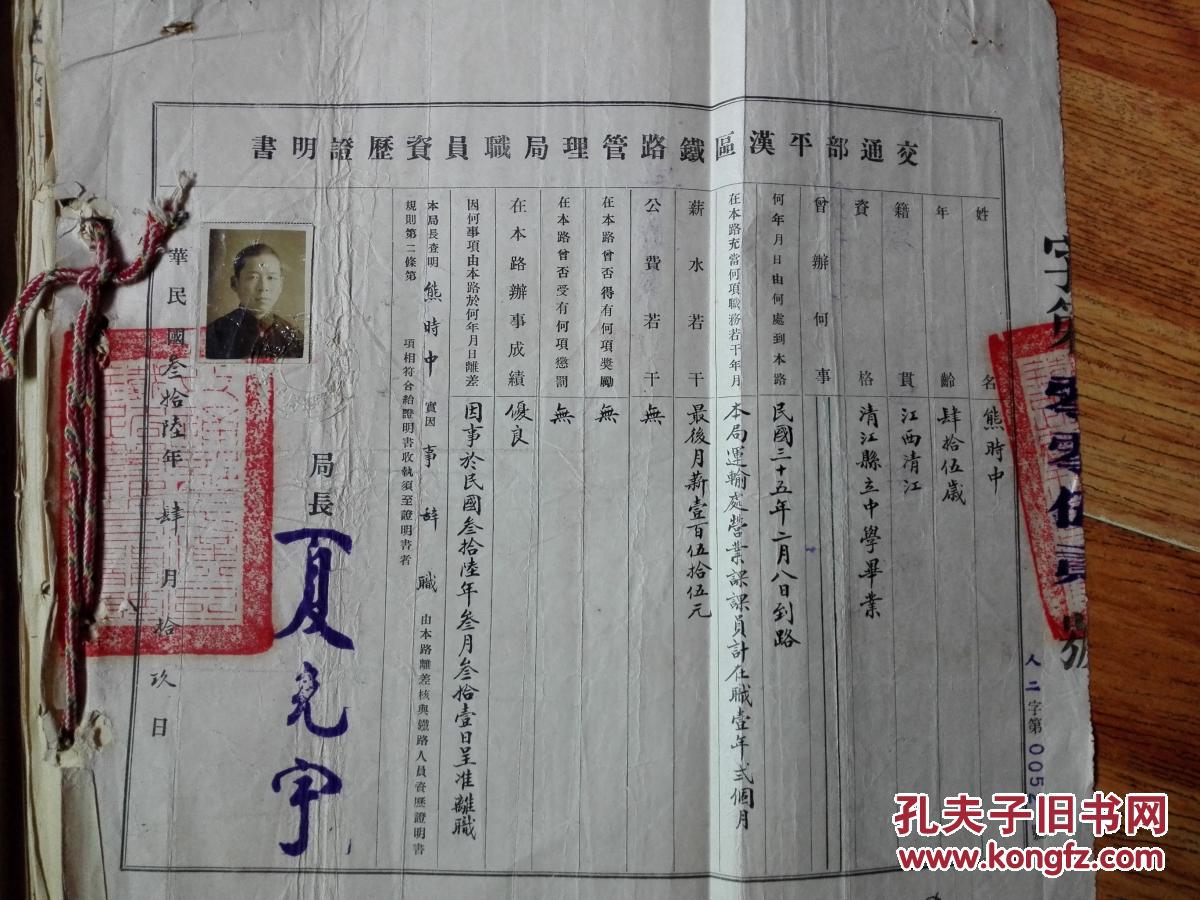 交通部平漢區鐵路管理局職員資歷證明書
姓名 熊時中
年齡 肆拾伍歲
籍貫 江西清江
資格 清江縣立中學畢業
曾辦何事
何年月日由何處到本路 民國三十五年二月八日到路
在本路充當何項職務若干年月 本局運輸處營業課課員計在職壹年弍個月
薪水若干 最後月薪壹百伍拾伍元
公費若干 無
在本路曾否得有何項獎勵 無
在本路曾否受有何項懲罰 無
在本路辦事成績 優良
因何事項由本路於何年月日離差 因事於民國叁拾陸年叁月叁拾壹日呈准離職
本局長查明 熊時中 實因 事辞職 由本路離差核與鐵路人員資歷證明書
規則第二條第 項相符合給證明書收執須至證明書者
局長 夏光宇
華民國叁拾陸年肆月拾玖日
人二字第005
孔夫子旧书网
www.kongfz.com